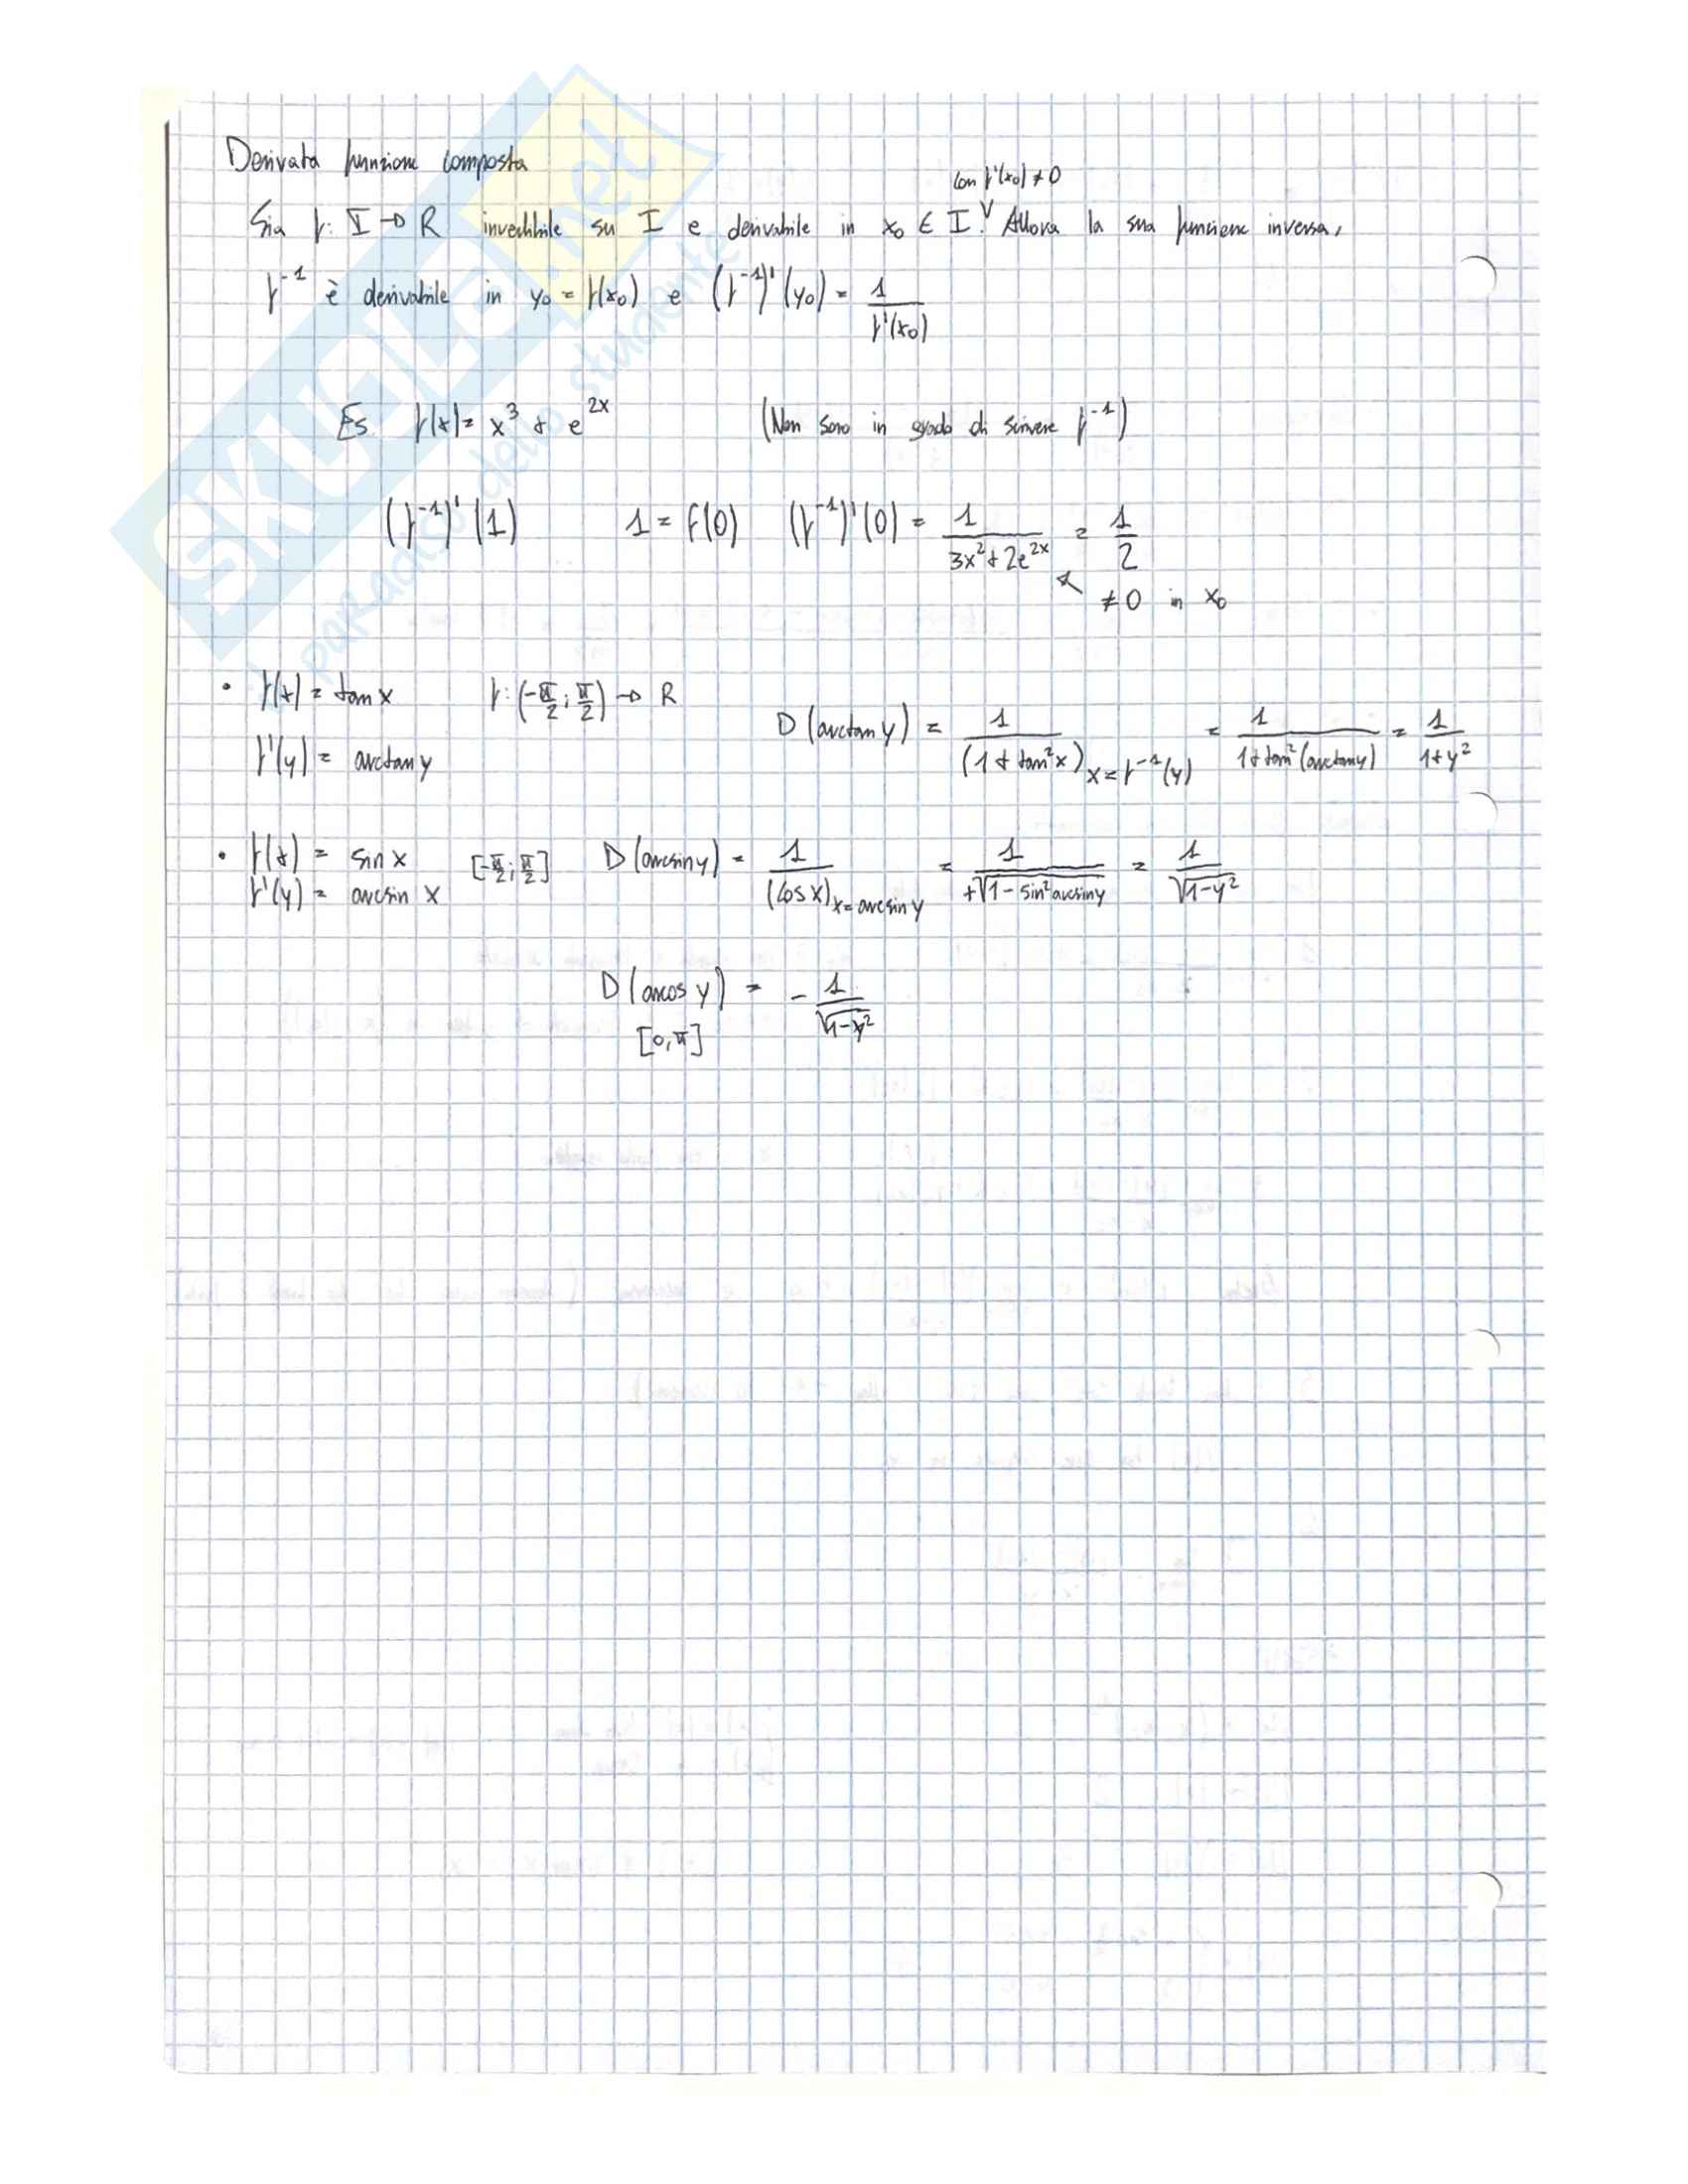 Derivata funzione composta
con f'(x₀) ≠ 0
Sia f: I → R invertibile su I e derivabile in x₀ ∈ I. ∨ Allora la sua funzione inversa,
f⁻¹ è derivabile in y₀ = f(x₀) e (f⁻¹)'(y₀) = 1/f'(x₀)
Es. f(x) = x³ + e^(2x) (Non sono in grado di scrivere f⁻¹)
(f⁻¹)'(1) 1 = f(0) (f⁻¹)'(0) = 1/(3x² + 2e^(2x)) = 1/2
≠ 0 in x₀
• f(x) = tan x f: (-π/2; π/2) → R
f'(y) = arctan y
D(arctan y) = 1/(1 + tan²x)_(x = f⁻¹(y)) = 1/(1 + tan²(arctan y)) = 1/(1 + y²)
• f(x) = sin x [-π/2; π/2] D(arcsin y) = 1/(cos x)_(x = arcsin y) = 1/(+√(1 - sin² arcsin y)) = 1/√(1 - y²)
f'(y) = arcsin x
D(arcos y) = - 1/√(1 - y²)
[0, π]
SKUOLA.net
paradiso dello studente